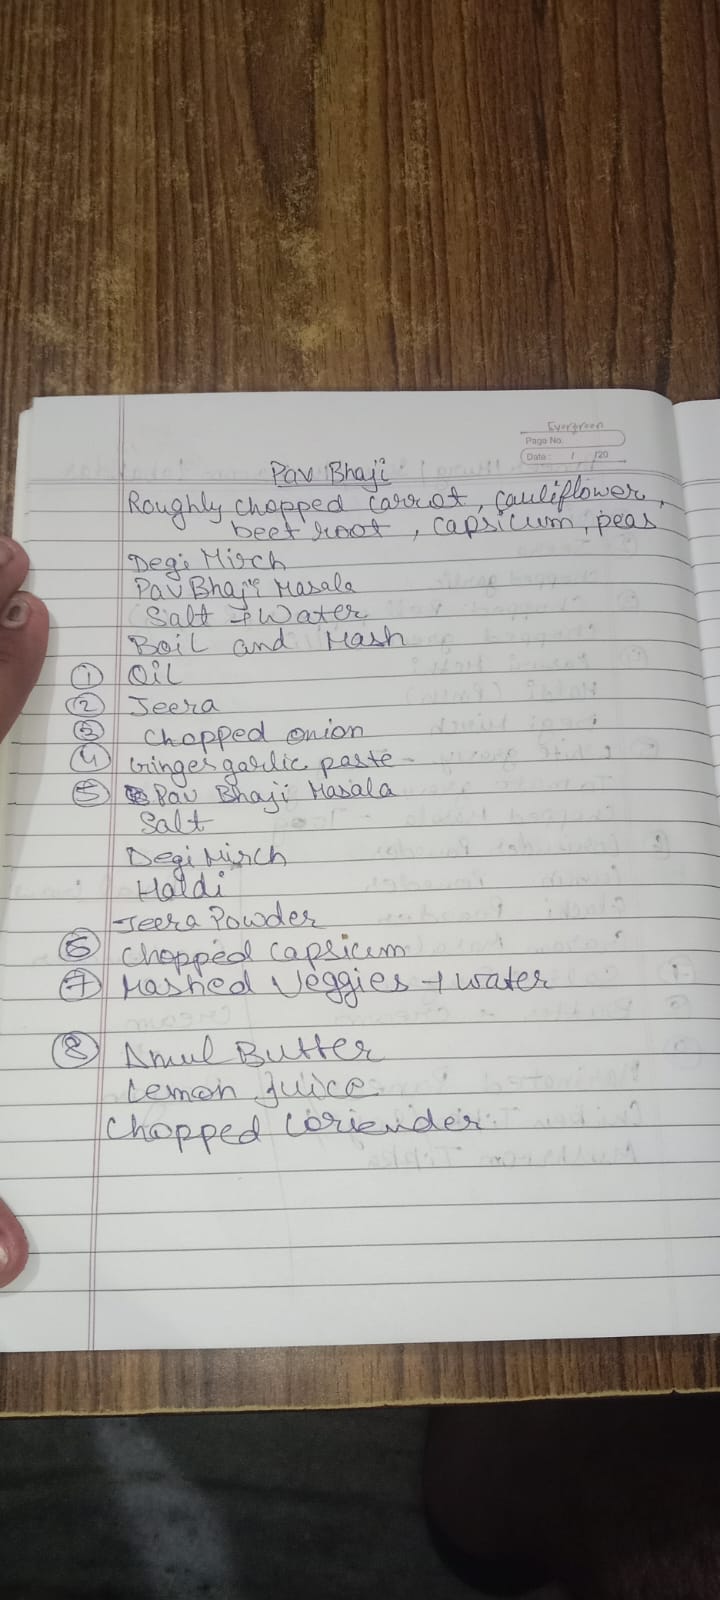 Evergreen
Page No.
Date: / /20
Pav Bhaji
Roughly chopped carrot, cauliflower,
beet root, capsicum, peas
Degi Mirch
Pav Bhaji Masala
Salt + Water
Boil and Mash
① Oil
② Jeera
③ Chopped onion
④ Ginger garlic paste
⑤ Pav Bhaji Masala
Salt
Degi Mirch
Haldi
Jeera Powder
⑥ Chopped Capsicum
⑦ Mashed Veggies + water
⑧ Amul Butter
Lemon Juice
Chopped Coriender